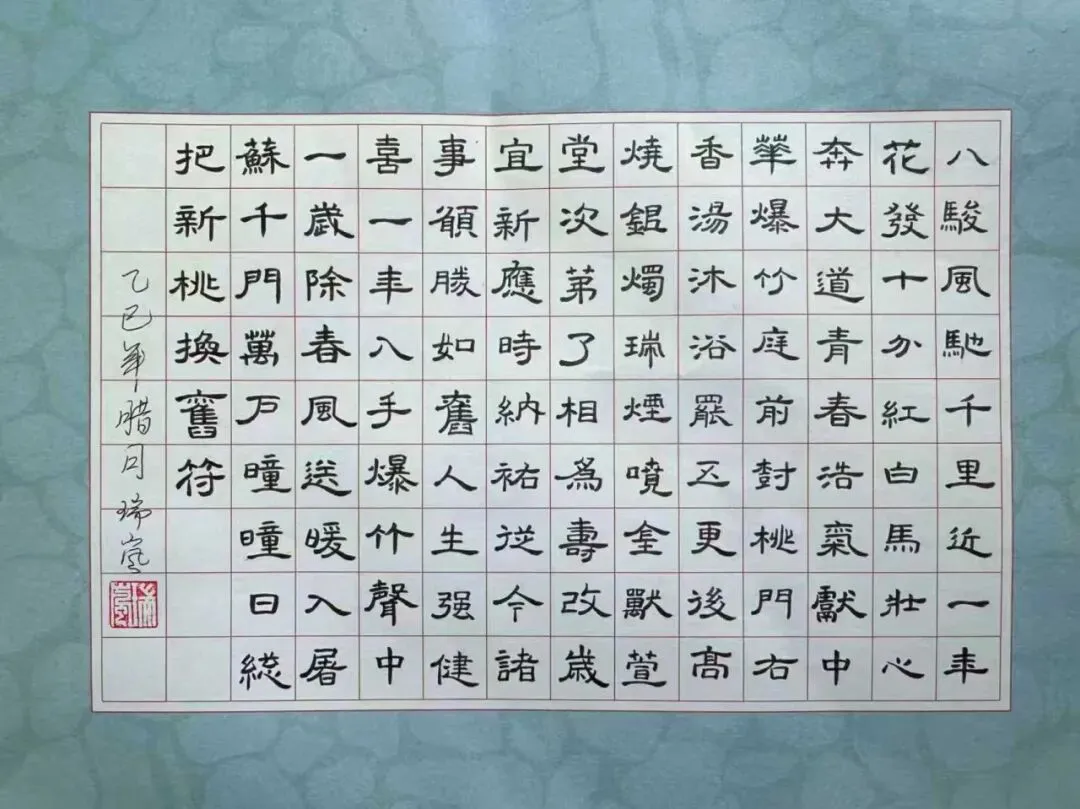 八駿風馳千里近一年
花發十分紅白馬壯心
奔大道青春浩氣獻中
華爆竹庭前尌桃門右
香湯沐浴罷五更後高
燒銀燭瑞煙噴金獸萱
堂次第了相爲壽改歲
宜新應時納祐從今諸
事願勝如舊人生强健
喜一年入手爆竹聲中
一歲除春風送暖入屠
蘇千門萬戶曈曈日總
把新桃換舊符
乙巳年腊月瑞嵐